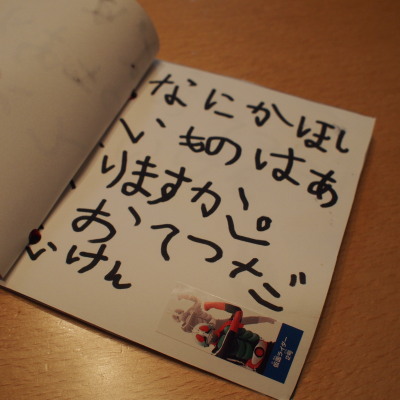 なにかほし
いものはあ
りますか、
おてつだ
いけん